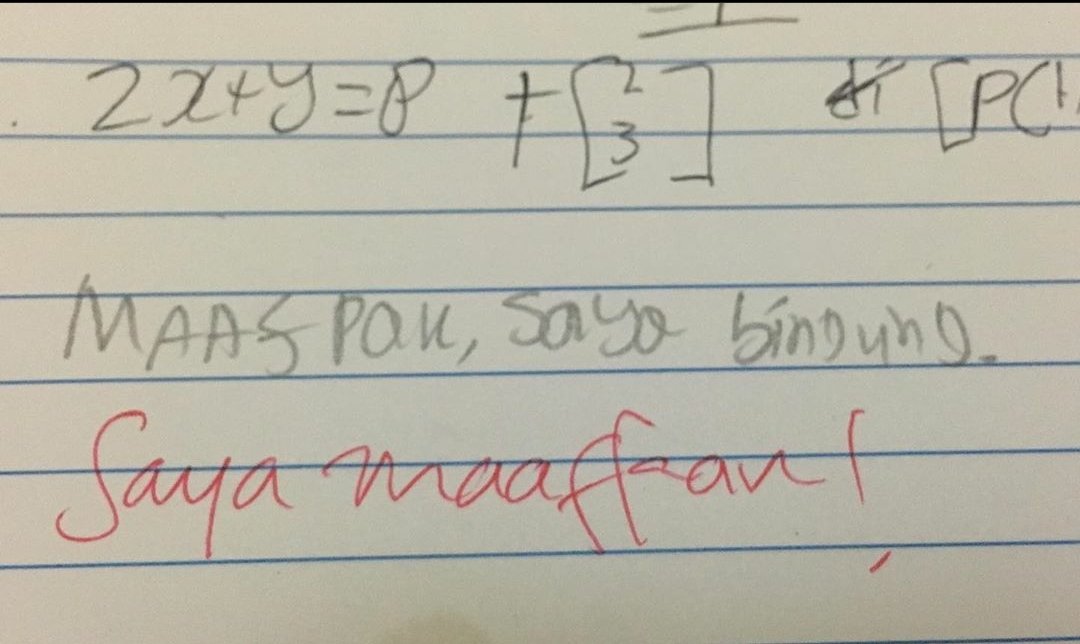 2x+y=8 + [2 3] di [P(1,
MAAF PAK, saya bingung.
Saya maafkan!